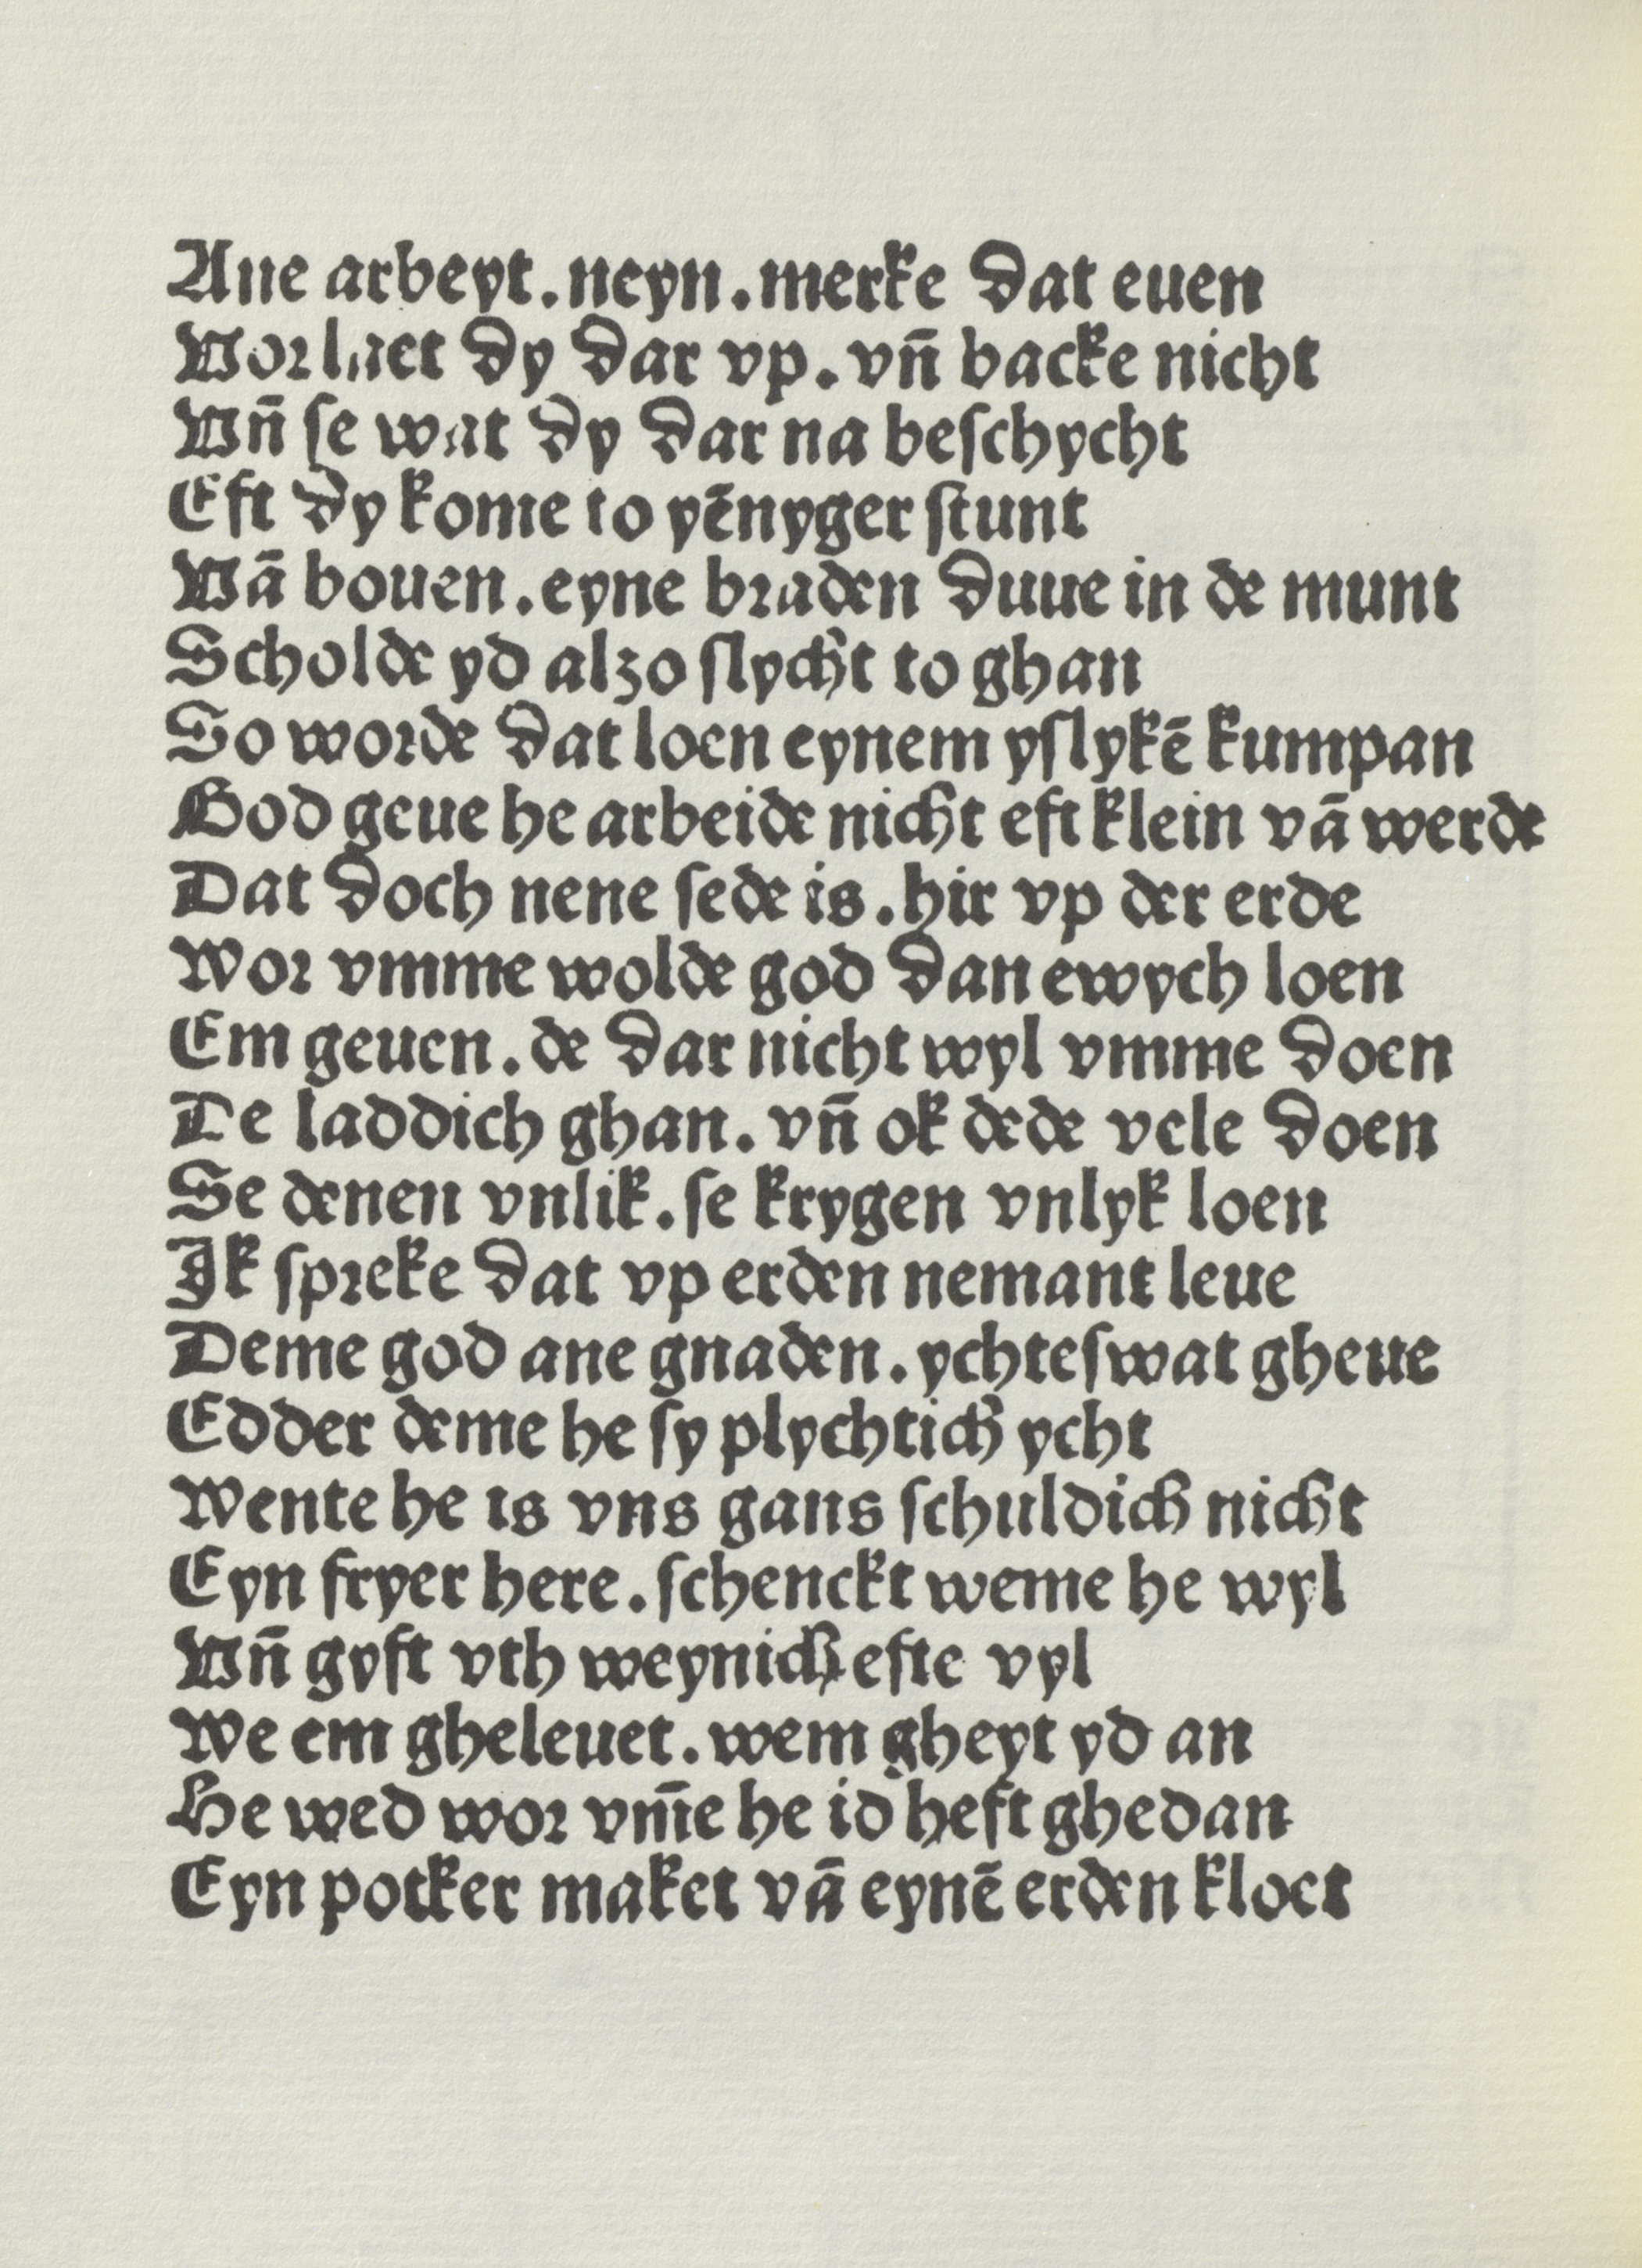 Ane arbeyt.neyn.merke dat euen
Vorlaet dy dar vp.vn̄ backe nicht
Vn̄ ſe wat dy dar na beſchycht
Eft dy kome to yēnyger ſtunt
Vā bouen.eyne braden duue in de munt
Scholde yd alzo ſlycht to ghan
So worde dat loen eynem yſlykē kumpan
God geue he arbeide nicht eft klein vā werde
Dat doch nene ſede is.hir vp der erde
Wor vmme wolde god dan ewych loen
Em geuen.de dar nicht wyl vmme doen
De laddich ghan.vn̄ ok dede vele doen
Se denen vnlik.ſe krygen vnlyk loen
Ik ſpreke dat vp erden nemant leue
Deme god ane gnaden.ychteſwat gheue
Edder deme he ſy plychtich ycht
Wente he is vns gans ſchuldich nicht
Eyn fryer here.ſchenckt weme he wyl
Vn̄ gyft vth weynich efte vyl
We em gheleuet.wem gheyt yd an
He wed wor vm̄e he id heft ghedan
Eyn potker maket vā eynē erden kloet